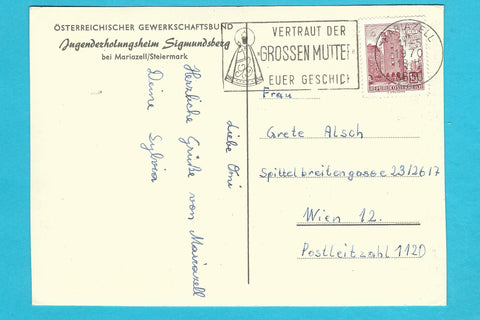 ÖSTERREICHISCHER GEWERKSCHAFTSBUND
Jugenderholungsheim Sigmundsberg
bei Mariazell/Steiermark
Liebe Omi
Herzliche Grüße von Mariazell
Deine Sylvia
VERTRAUT DER
GROSSEN MUTTER
EUER GESCHICK
MARIAZELL
1970
REPUBLIK ÖSTERREICH
Frau
Grete Alsch
Spittelbreitengasse 23/26/7
Wien 12.
Postleitzahl 1120